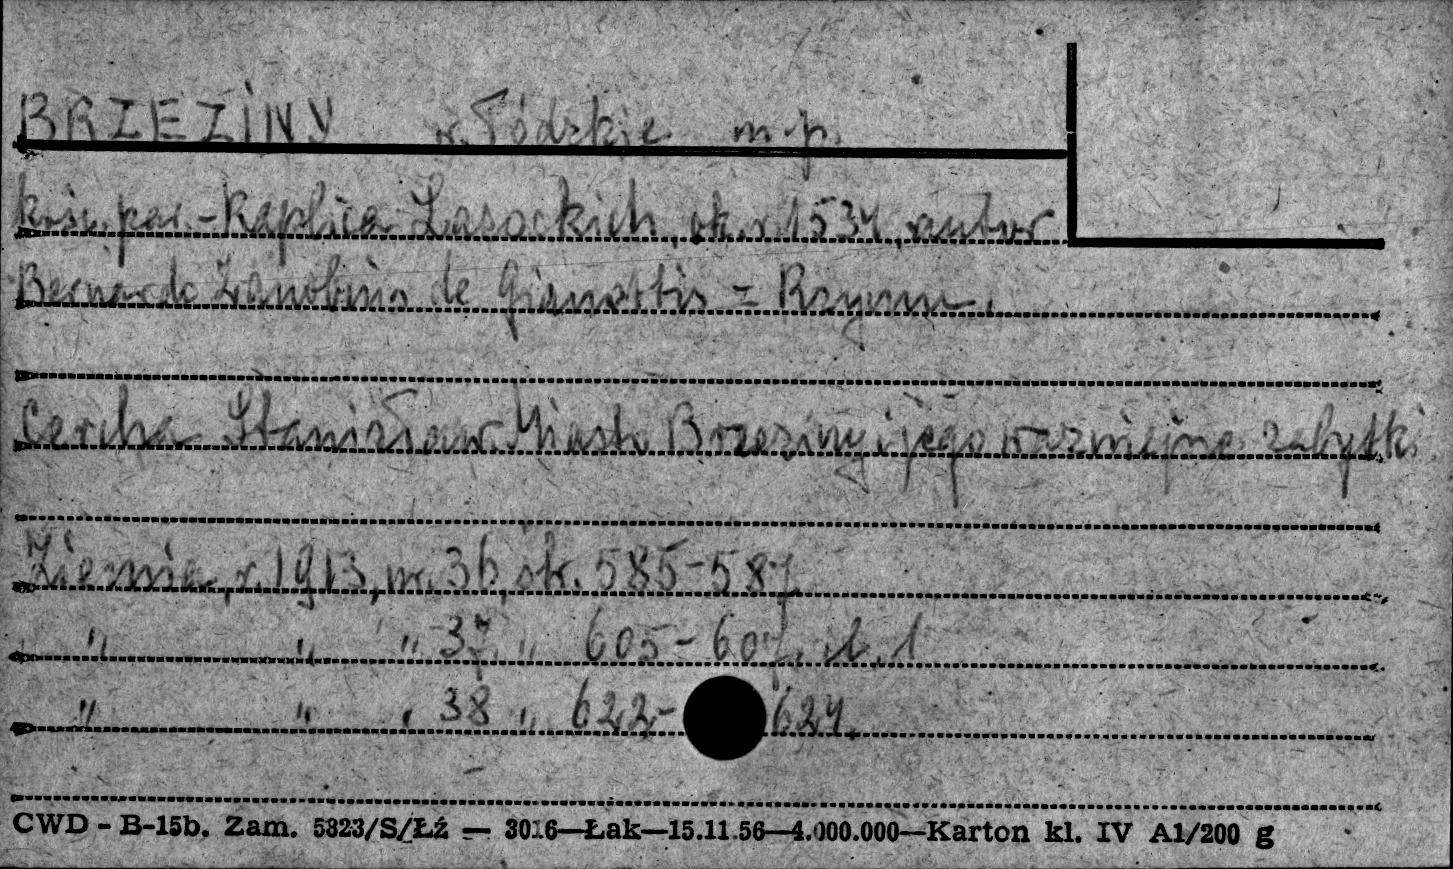 BRZEZINY w. łódzkie m.p.
kośc. par. - Kaplica Lasockich, ok. r. 1534, autor
Bernardo Zanobius de Gianottis = Rzymu.
Cercha Stanisław. Miasto Brzeziny i jego ważniejsze zabytki.
Ziemia, r. 1913, nr. 36, str. 585-587
" " " 37, " 605-607. il. 1
" " " 38 " 622-624.
CWD - B-15b. Zam. 5823/S/Łź — 3016—Łak—15.11.56—4.000.000—Karton kl. IV A1/200 g